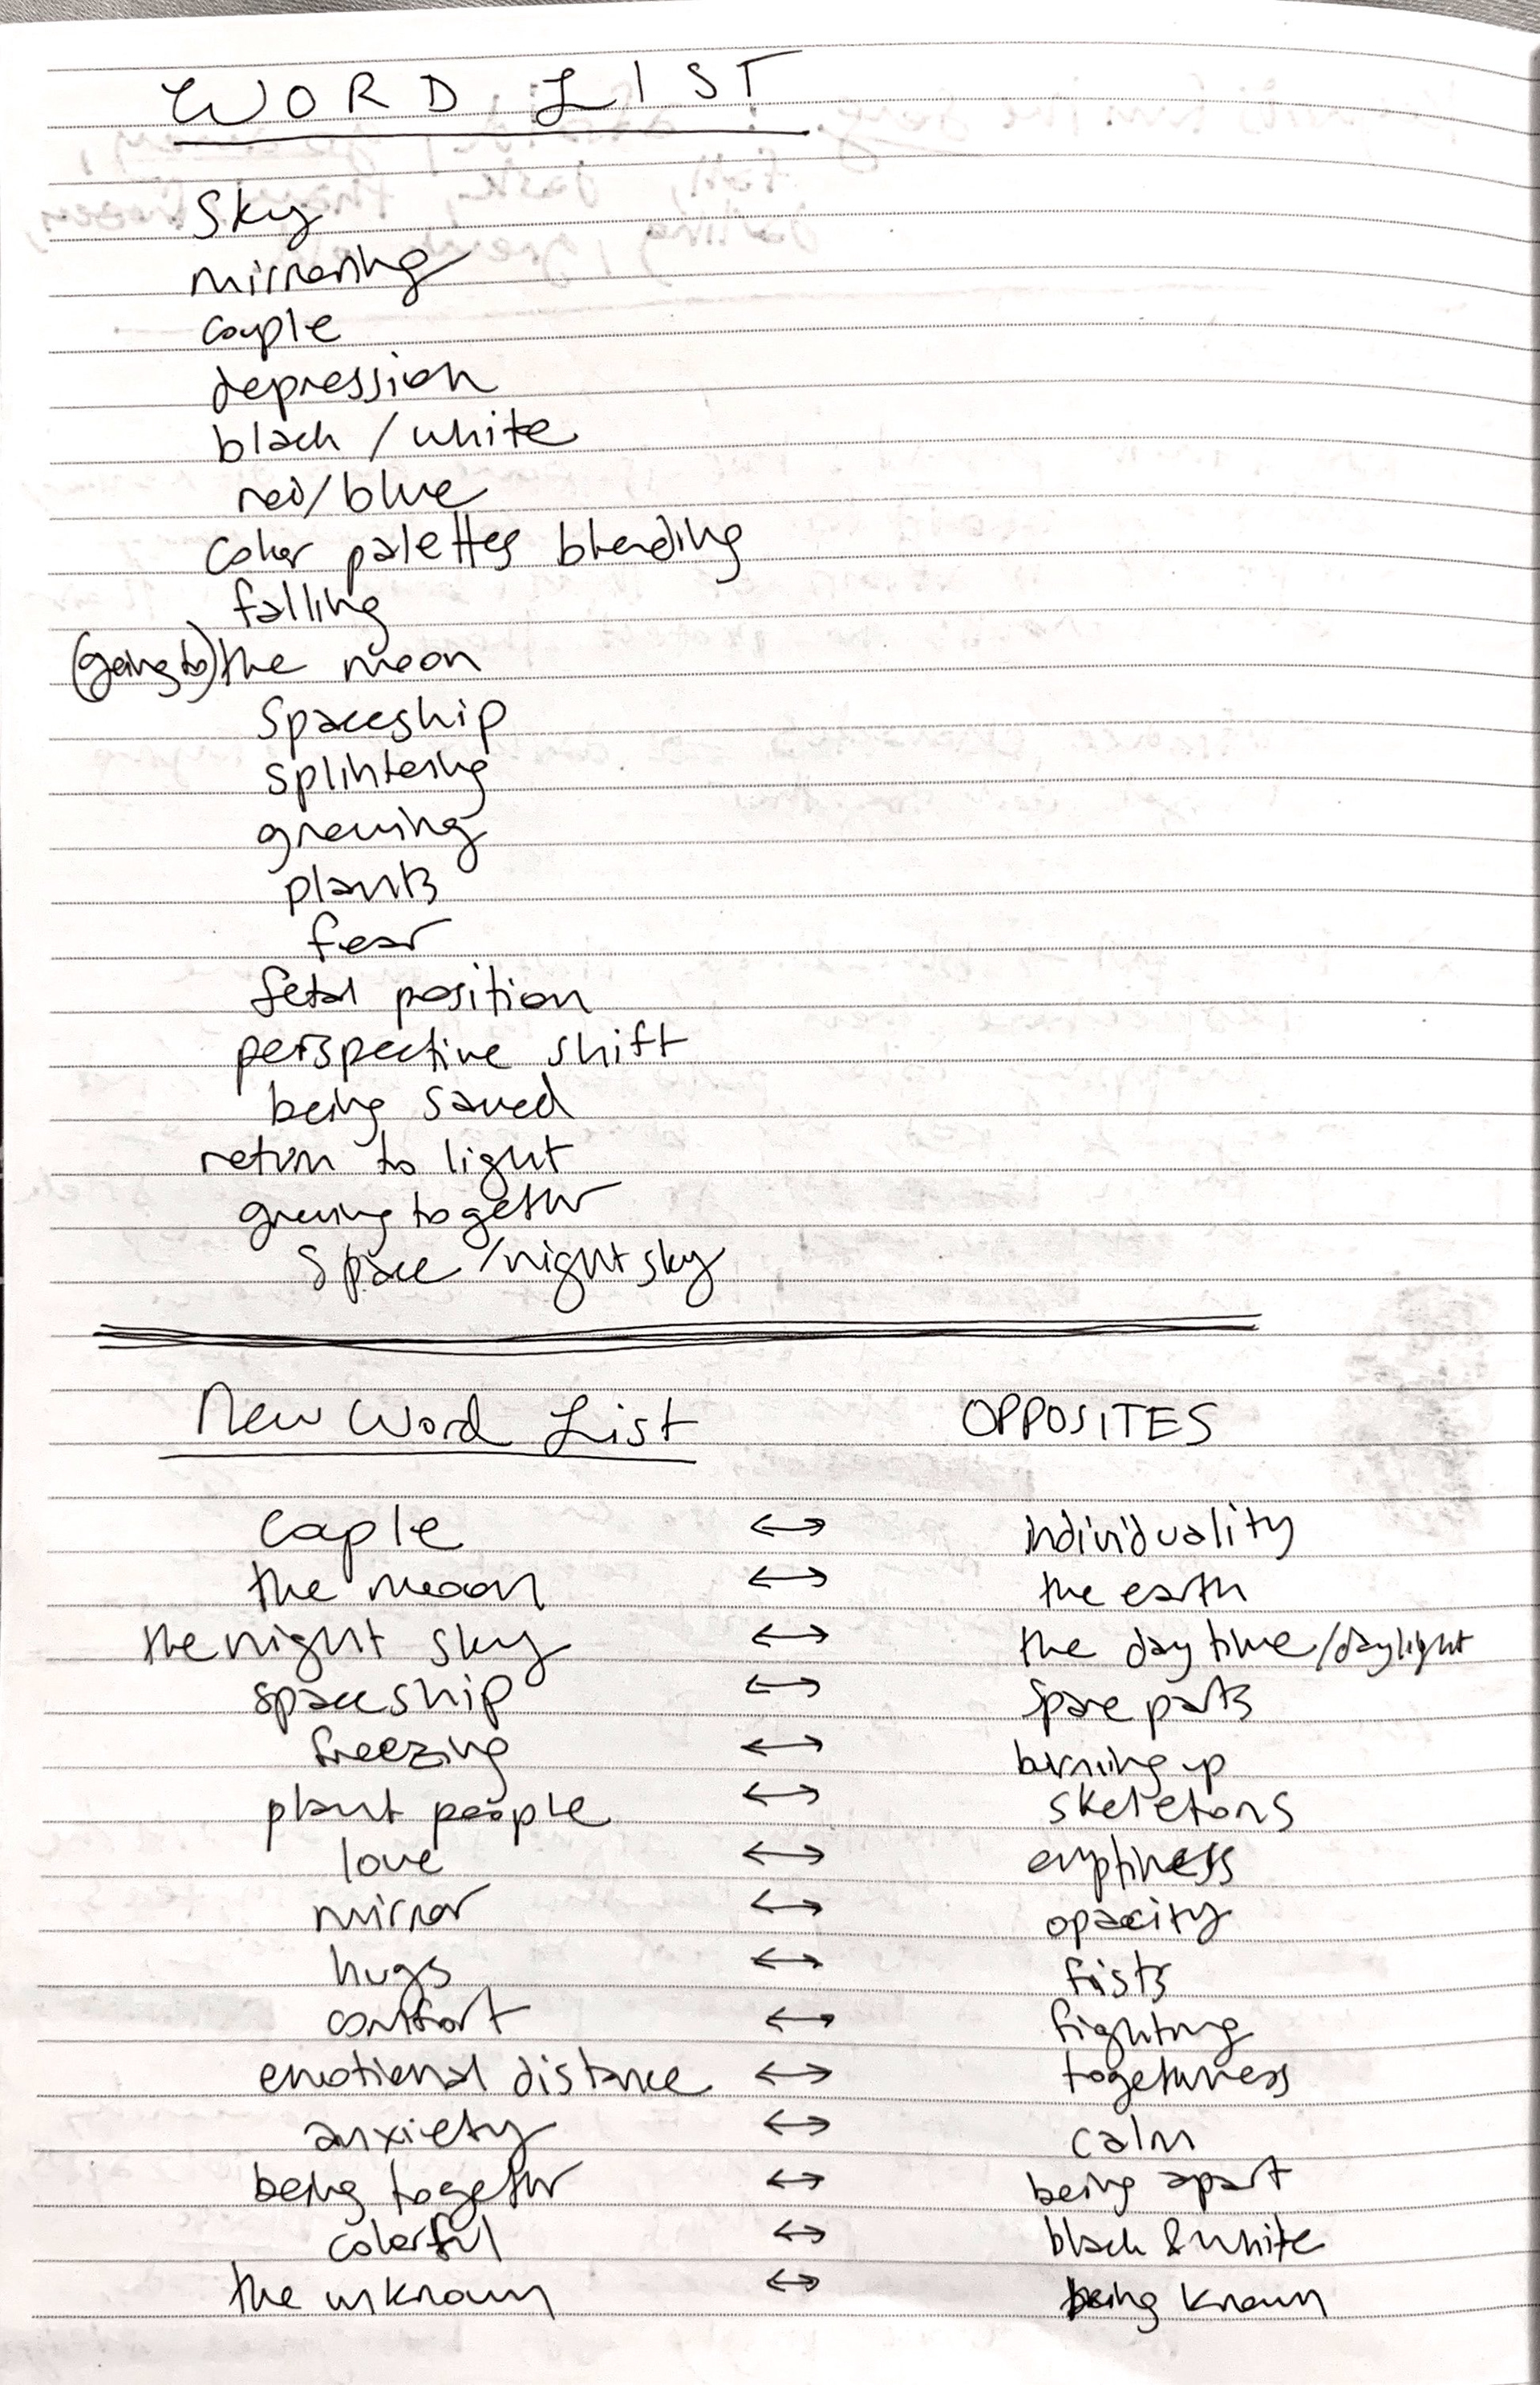 WORD LIST
Sky
mirroring
couple
depression
black / white
red/blue
color palettes blending
falling
(going to) the moon
Spaceship
splintering
growing
plants
fear
fetal position
perspective shift
being saved
return to light
growing together
Space / night sky
New Word List OPPOSITES
couple ↔ individuality
the moon ↔ the earth
the night sky ↔ the daytime/daylight
spaceship ↔ spare parts
freezing ↔ burning up
plant people ↔ skeletons
love ↔ emptiness
mirror ↔ opacity
hugs ↔ fists
comfort ↔ fighting
emotional distance ↔ togetherness
anxiety ↔ calm
being together ↔ being apart
colorful ↔ black & white
the unknown ↔ being known